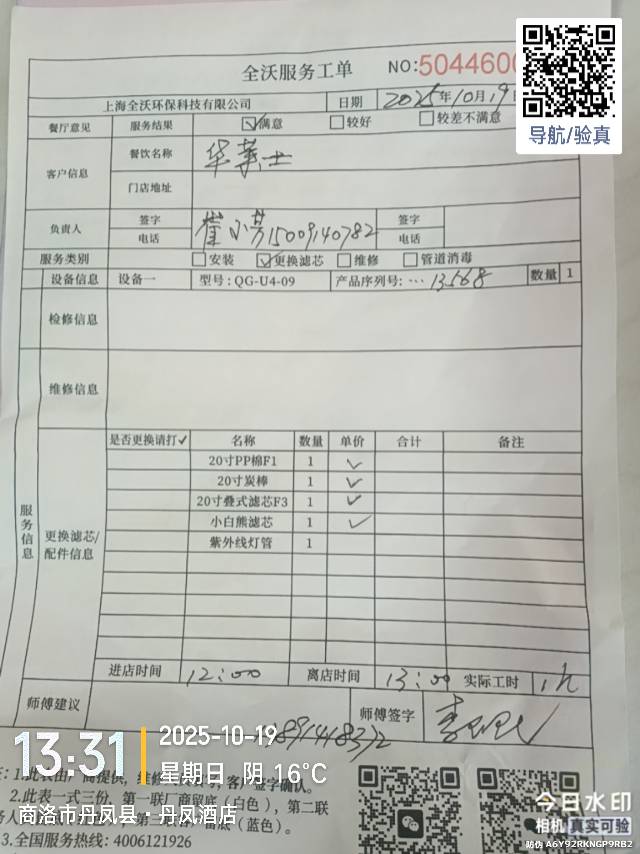 全沃服务工单 NO:5044600
上海全沃环保科技有限公司 日期 2025年10月19日
餐厅意见 服务结果 ☑满意 □较好 □较差不满意
导航/验真
客户信息 餐饮名称 华莱士
门店地址
负责人 签字 崔小芳 签字
电话 15009140782 电话
服务类别 □安装 ☑更换滤芯 □维修 □管道消毒
设备信息 设备一 型号:QG-U4-09 产品序列号:…13568 数量 1
检修信息
维修信息
服务信息
更换滤芯/配件信息
是否更换请打✓ 名称 数量 单价 合计 备注
20寸PP棉F1 1 ✓
20寸炭棒 1 ✓
20寸叠式滤芯F3 1 ✓
小白熊滤芯 1 ✓
紫外线灯管 1
进店时间 12:00 离店时间 13:00 实际工时 1h
师傅建议 师傅签字
13:31 2025-10-19
星期日 阴 16℃
商洛市丹凤县·丹凤酒店
客户签字确认。
2.此表一式三份,第一联厂商留底(白色),第二联
(蓝色)。
3.全国服务热线:4006121926
今日水印
相机 真实可验
防伪 A6Y92RKNGP9RB2